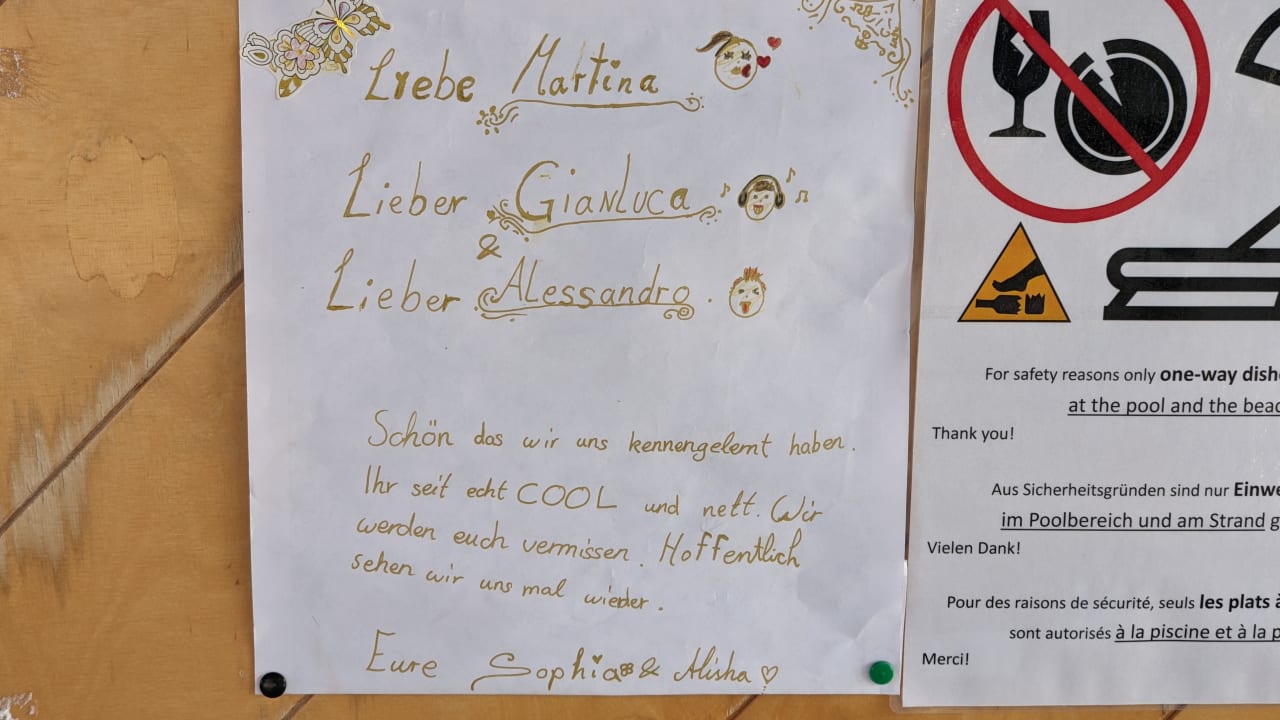 Liebe Martina
Lieber Gianluca
&
Lieber Alessandro.
Schön das wir uns kennengelernt haben.
Ihr seit echt COOL und nett. Wir
werden euch vermissen. Hoffentlich
sehen wir uns mal wieder.
Eure Sophia & Alisha
For safety reasons only one-way
at the pool and the
Thank you!
Aus Sicherheitsgründen sind nur
im Poolbereich und am Strand
Vielen Dank!
Pour des raisons de sécurité, seuls les plats à
sont autorisés à la piscine et à la
Merci!